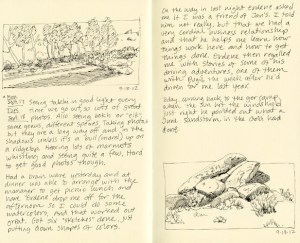 9.18.12
Sept 17 Seeing takin in good light every
time we go out, so lots of good
photos. Also seeing takin or "elk"
same genus, different spp. Taking photos
but they are a long way off and in the
shadows unless
a ridgetop. Hearing lots of marmots
whistling and seeing quite a few. Hard
to get good photos though.
Had a down day yesterday and at
dinner was able to arrange with the
manager to get picnic lunch and
have Erdene drive me off for the
afternoon so I could do some
watercolors, and that worked out
great. Got six "sketches" done... just
putting down shapes of colors.
On the way in last night Erdene asked
me if I was a friend of Jan's. I said
not really, but that we had a
very cordial business relationship
and that he helps me learn how
things work here and how to get
things done. Erdene then regaled
me with stories of some of his
driving adventures, one of them
with Hugh the week after he'd
driven for me last year.
Today coming back to the ger camp,
again the sun hit the windshield
just right he pointed out what a
Stone Tortoise, in the data had
done.
9.18.12